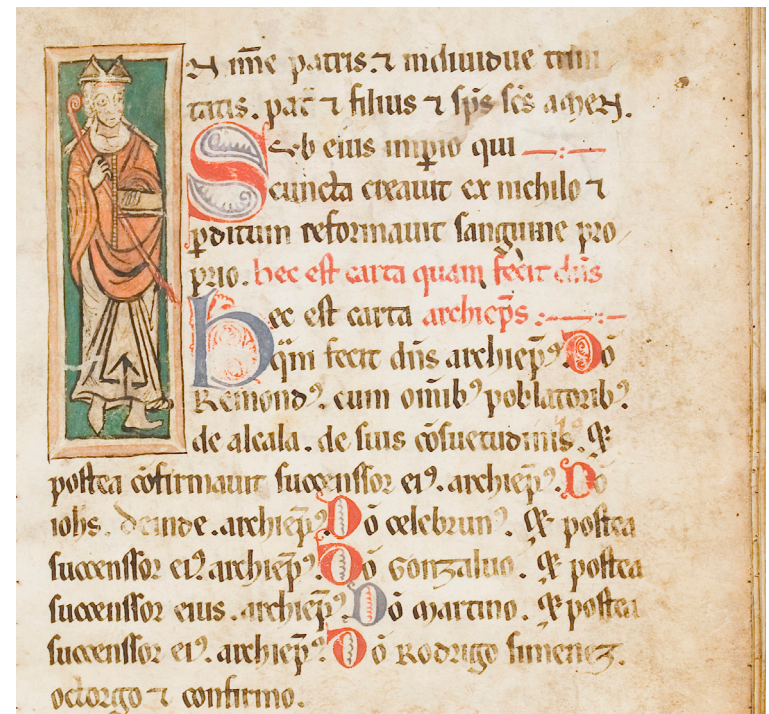 N nn̄e patris. ⁊ indiuidue trini
tatis. pat̄ ⁊ filius ⁊ sp̄s sc̄s amen.
Sub eius imꝑio qui
cuncta creauit ex nichilo ⁊
ꝑditum reformauit sanguine pro
prio. hec est carta quam fecit dn̄s
hec est carta archiep̄s
q̄m fecit dn̄s archiep̄ꝰ Dō
Remondꝰ. cum om̄ibꝰ poblatoribꝰ.
de alcala. de suis cōsuetudinis. Et
postea cōfirmauit succenssor eiꝰ. archiep̄ꝰ. Dō
iohs. deinde. archiep̄ꝰ Dō celebrunꝰ. Et postea
succenssor eiꝰ. archiep̄ꝰ. Dō Gonzaluo. Et postea
succenssor eius. archiep̄ꝰ. Dō Martino. Et postea
succenssor eiꝰ. archiep̄ꝰ. Dō Rodrigo simenez.
octorgo ⁊ confirmo.